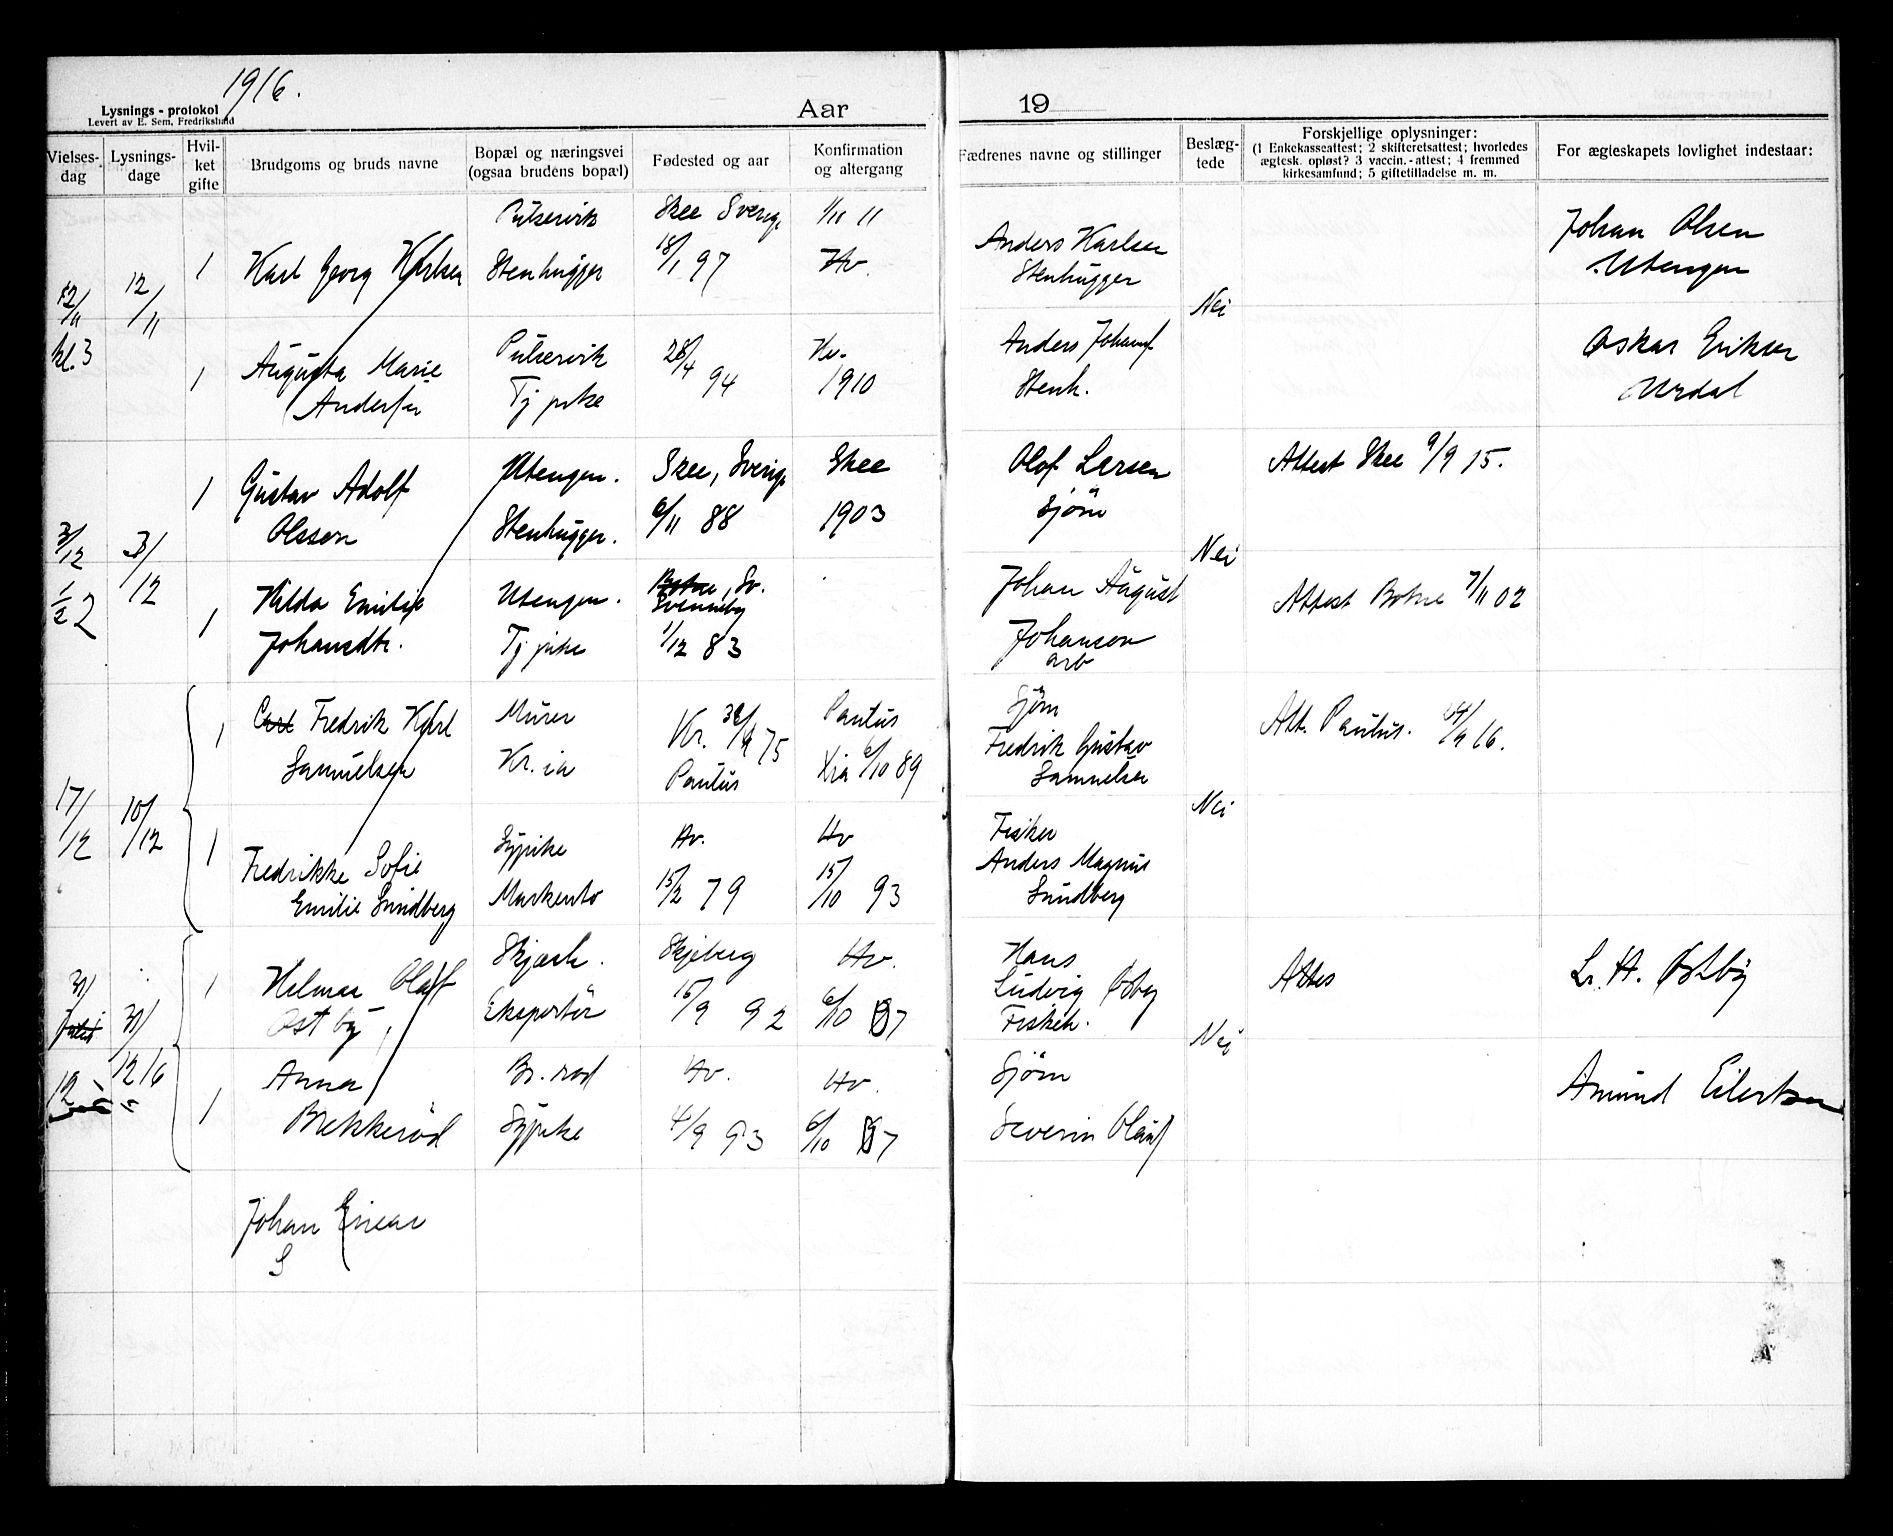 1916.
Lysnings-protokol
Levert av E. Sem, Fredrikshald
Aar
19
Vielses-dag
Lysnings-dage
Hvil-ket gifte
Brudgoms og bruds navne
Bopæl og næringsvei (ogsaa brudens bopæl)
Fødested og aar
Konfirmation og altergang
Fædrenes navne og stillinger
Beslæg-tede
Forskjellige oplysninger:
(1 Enkekasseattest; 2 skifteretsattest; hvorledes
ægtesk. opløst? 3 vaccin.-attest; 4 fremmed
kirkesamfund; 5 giftetilladelse m. m.
For ægteskapets lovlighet indestaar:
12/11
kl. 3
12/11
1
Karl Georg Karlsen
Pulservik
Stenhugger
Skee Sverige
18/1 97
1/11 11
Hv.
Anders Karlsen
Stenhugger
Nei
Johan Olsen
Utengen
1
Augusta Marie
Andersen
Pulservik
Tj pike
28/4 94
Hv.
1910
Anders Johans
Stenh.
Oskar Eriksen
Urdal
3/12
1/2 2
3/12
1
Gustav Adolf
Olsson
Utengen.
Stenhugger.
Skee, Sverige
6/11 88
Skee
1903
Olof Larsen
Sjöm
Nei
Attest Skee 9/9 15.
1
Hilda Emilie
Johansdtr.
Utengen.
Tj pike
Botne, Sv.
Svenneby
1/12 83
Johan August
Johanson
arb
Attest Botne 7/11 02
17/12
10/12
1
Carl Fredrik Karl
Samuelsen
Murer
Kr.ia
Kr. 30/9 75
Paulus
Paulus
Kria 6/10 89
Sjöm
Fredrik Gustav
Samuelsen
Nei
Att. Paulus. 16.
1
Fredrikke Sofie
Emilie Sundberg
Sypike
Hv.
15/2 79
Hv
15/10 93
Fisker
Anders Magnus
Sundberg
31/
12
31/
12 16
1
Hilmar Olaf
Østby
Skjærh.
Eksportör
Skjeberg
15/9 92
Hv.
6/10 07
Hans
Ludvig Østby
Fiskeh.
Nei
Attes
L. H. Østby
1
Anna
Brekkeröd
Br. röd
Sypike
Hv.
4/9 93
Hv.
6/10 07
Sjöm
Severin Olaus
Amund Eilertsen
Johan Einar
S